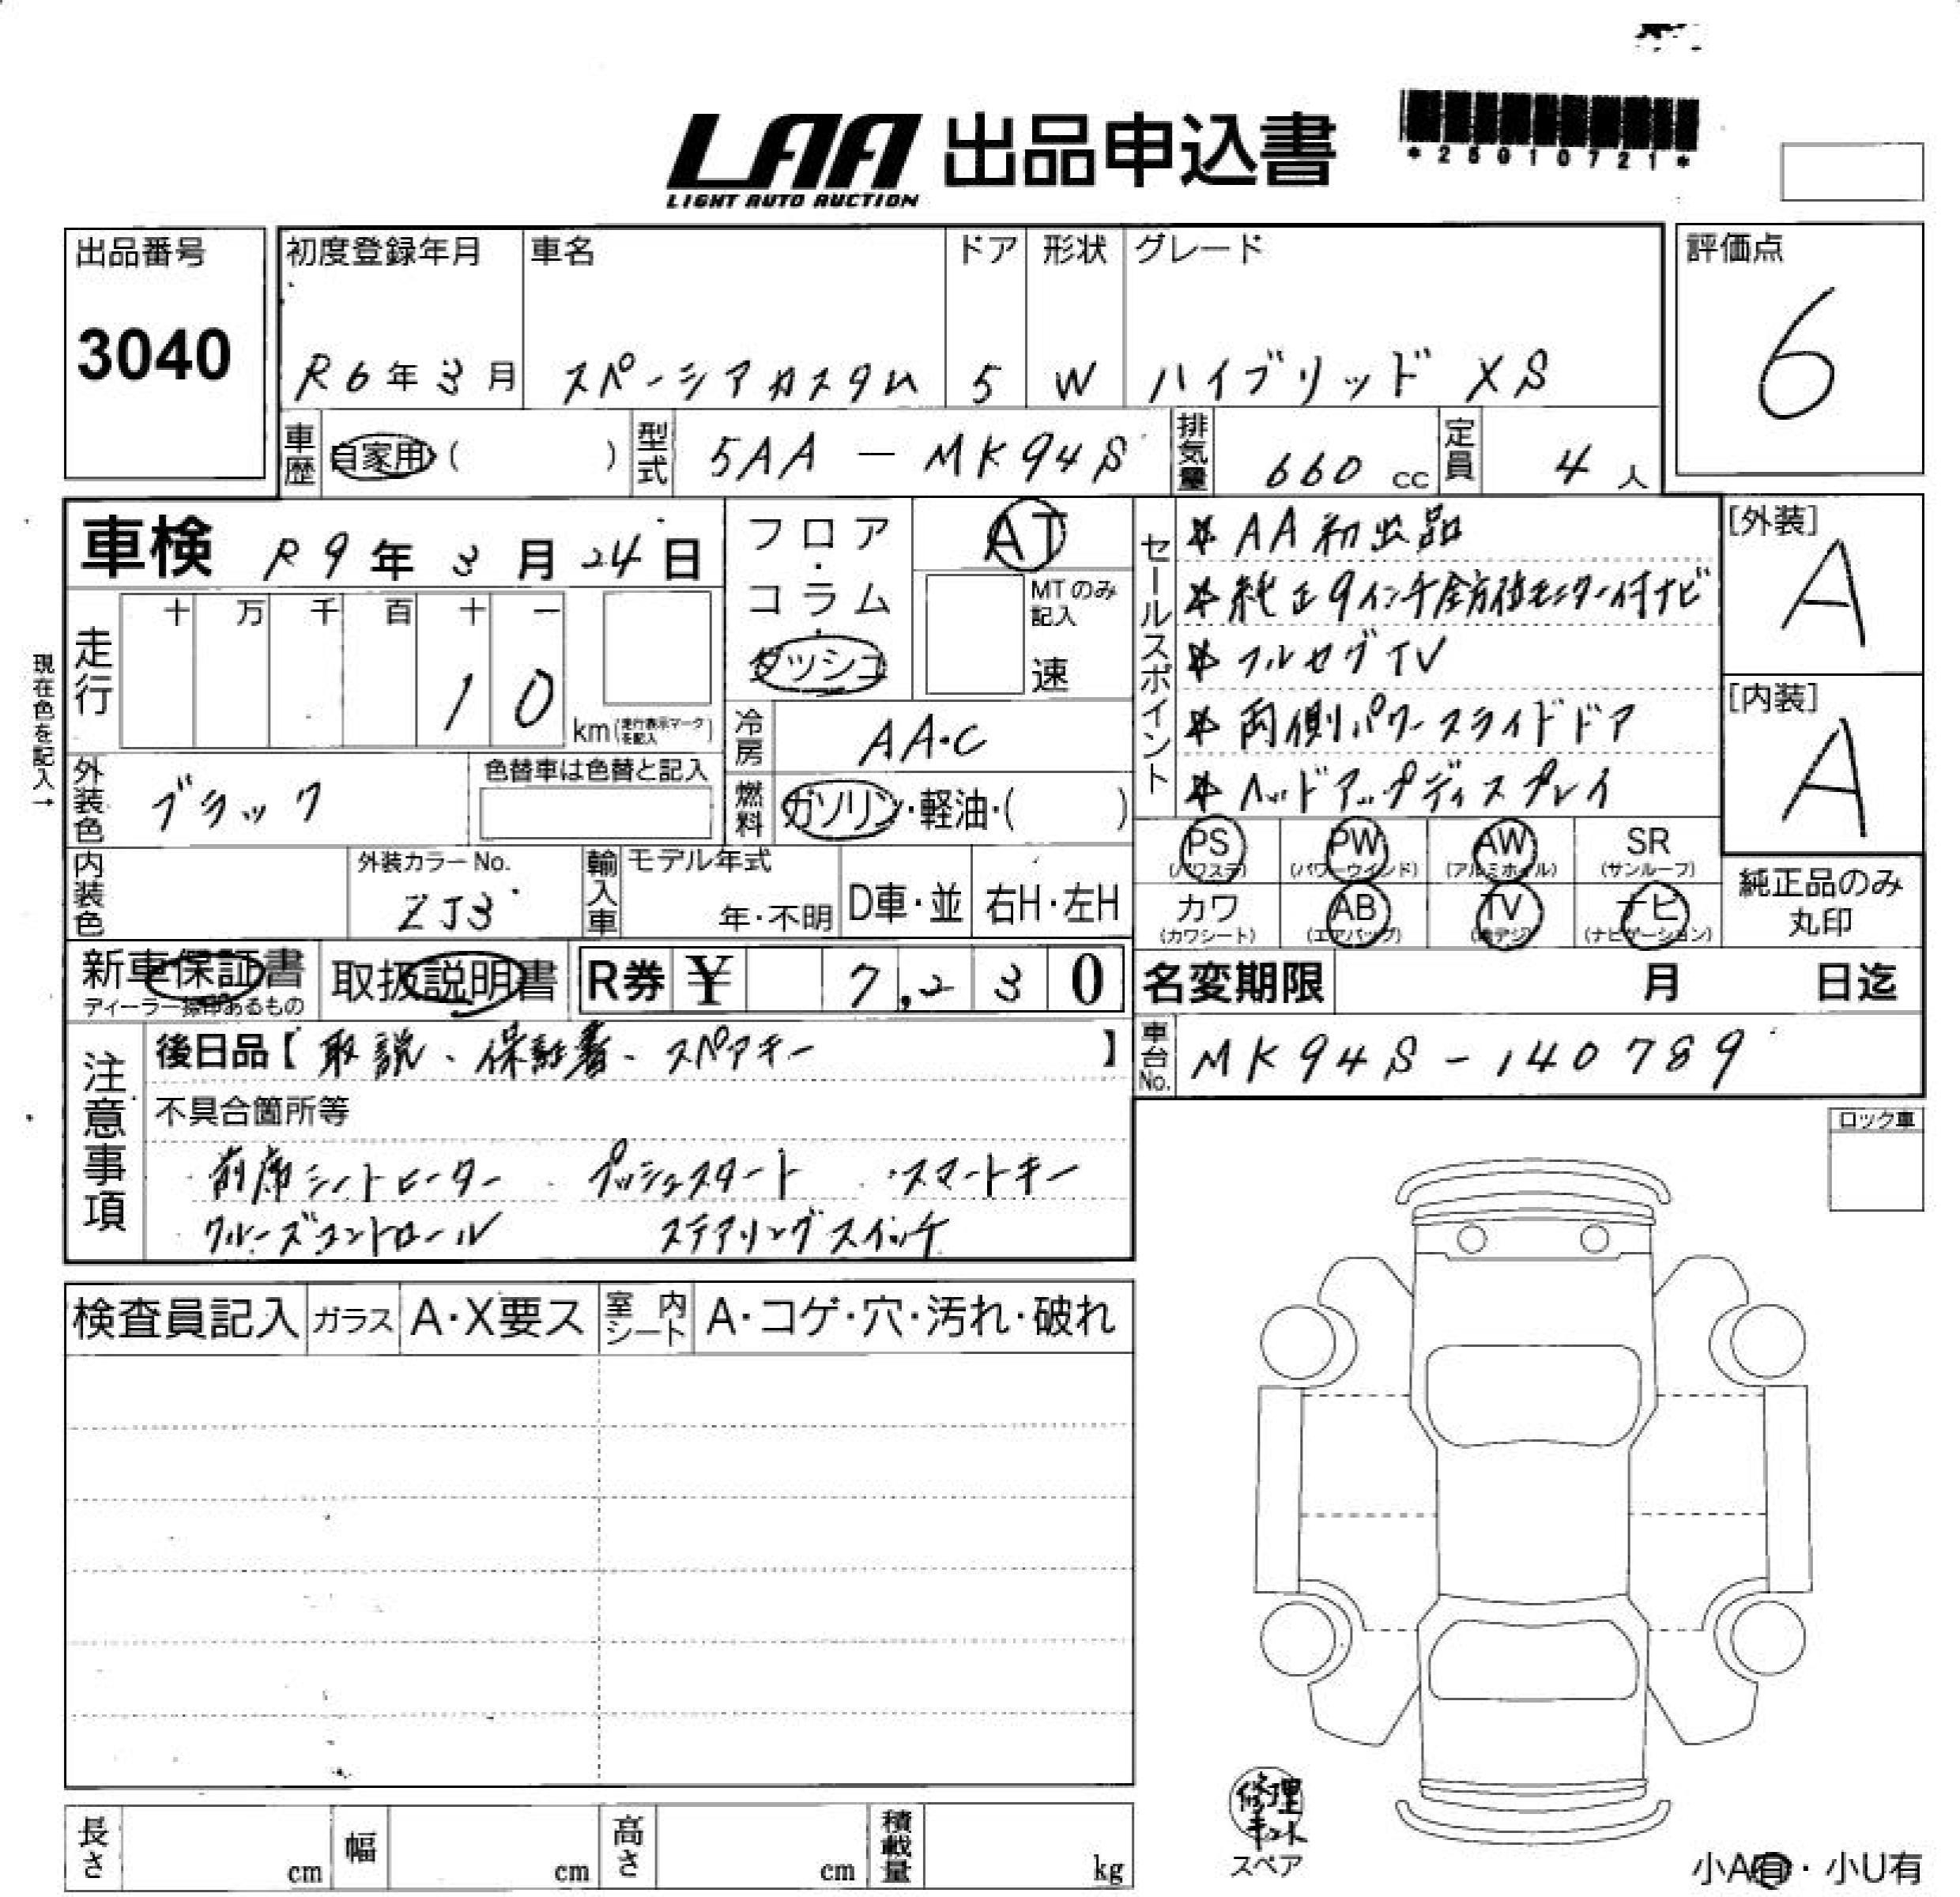 LAA 出品申込書
LIGHT AUTO AUCTION
*25010721*
出品番号
3040
初度登録年月 車名 ドア 形状 グレード
R6年3月 スペーシアカスタム 5 W ハイブリッド XS
評価点
6
車歴 自家用 ( ) 型式 5AA-MK94S 排気量 660cc 定員 4人
車検 R9年3月24日
フロア・コラム・ダッシュ
AT
MTのみ記入
速
セールスポイント
*AA初出品
*純正9インチ全方位モニター付ナビ
*フルセグTV
*両側パワースライドドア
*ヘッドアップディスプレイ
[外装]
A
[内装]
A
現在色を記入→
走行 十 万 千 百 十 一
10 km (走行表示マークを記入)
冷房 AA・C
外装色 ブラック 色替車は色替と記入
燃料 ガソリン・軽油・( )
PS (パワステ) PW (パワーウインド) AW (アルミホイル) SR (サンルーフ)
カワ (カワシート) AB (エアバッグ) TV (地デジ) ナビ (ナビゲーション)
純正品のみ丸印
内装色 外装カラーNo. ZJ3 輸入車 モデル年式 年・不明 D車・並 右H・左H
新車保証書 ディーラー捺印あるもの 取扱説明書 R券 ¥ 7,230
名変期限 月 日迄
車台No. MK94S-140789
注意事項
後日品【取説、保証書、スペアキー】
不具合箇所等
前席シートヒーター プッシュスタート ・スマートキー
クルーズコントロール ステアリングスイッチ
ロック車
検査員記入 ガラス A・X要ス 室内シート A・コゲ・穴・汚れ・破れ
修理キット
スペア
長さ cm 幅 cm 高さ cm 積載量 kg
小A有・小U有